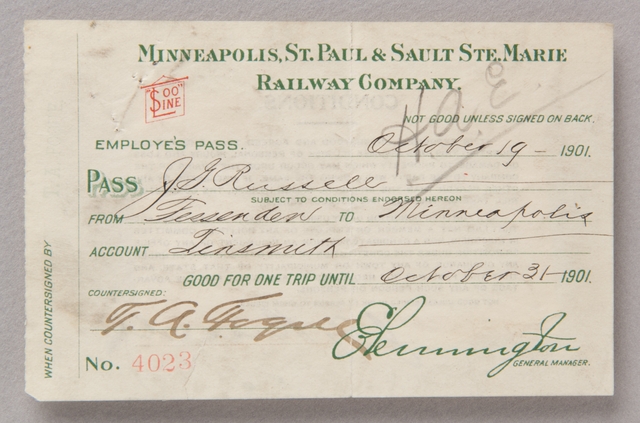 MINNEAPOLIS, ST. PAUL & SAULT STE. MARIE
RAILWAY COMPANY.
"SOO" LINE
NOT GOOD UNLESS SIGNED ON BACK.
EMPLOYE'S PASS. October 19 - 1901.
PASS J. G. Russell
SUBJECT TO CONDITIONS ENDORSED HEREON
FROM Fessenden TO Minneapolis
ACCOUNT Tinsmith
GOOD FOR ONE TRIP UNTIL October 31 - 1901.
COUNTERSIGNED:
T. A.
GENERAL MANAGER.
No. 4023
WHEN COUNTERSIGNED BY